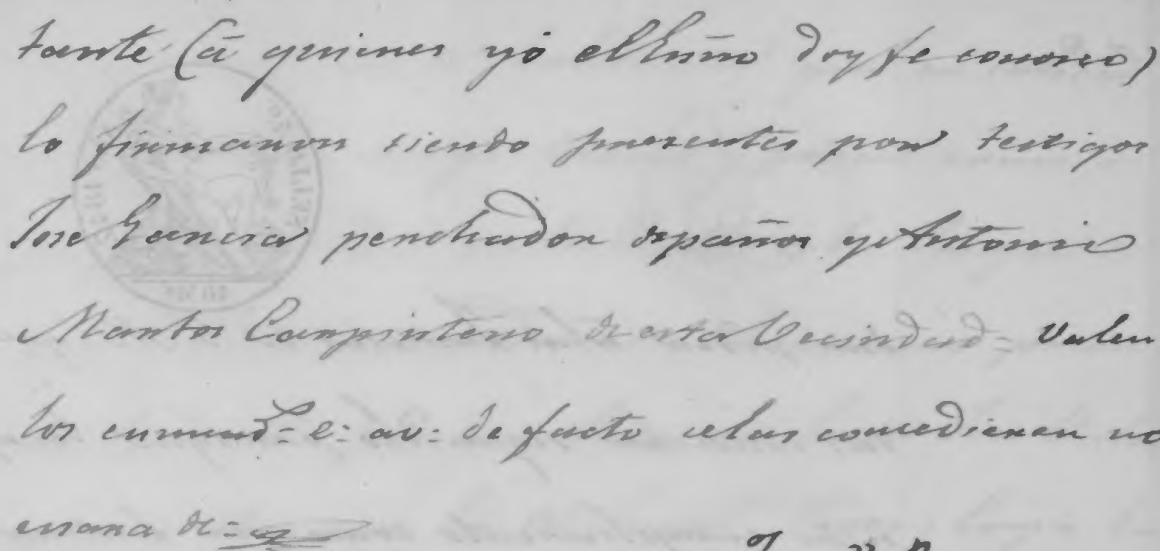 tante (á quienes yó el Essño doy fe conosco)
lo firmaron siendo presentes por testigos
Jose Garcia penchador de paños y Antonio
Carpintero de esta Vecindad = Valen
los enmend.^s = e = av = de facto = las concedieren
de =